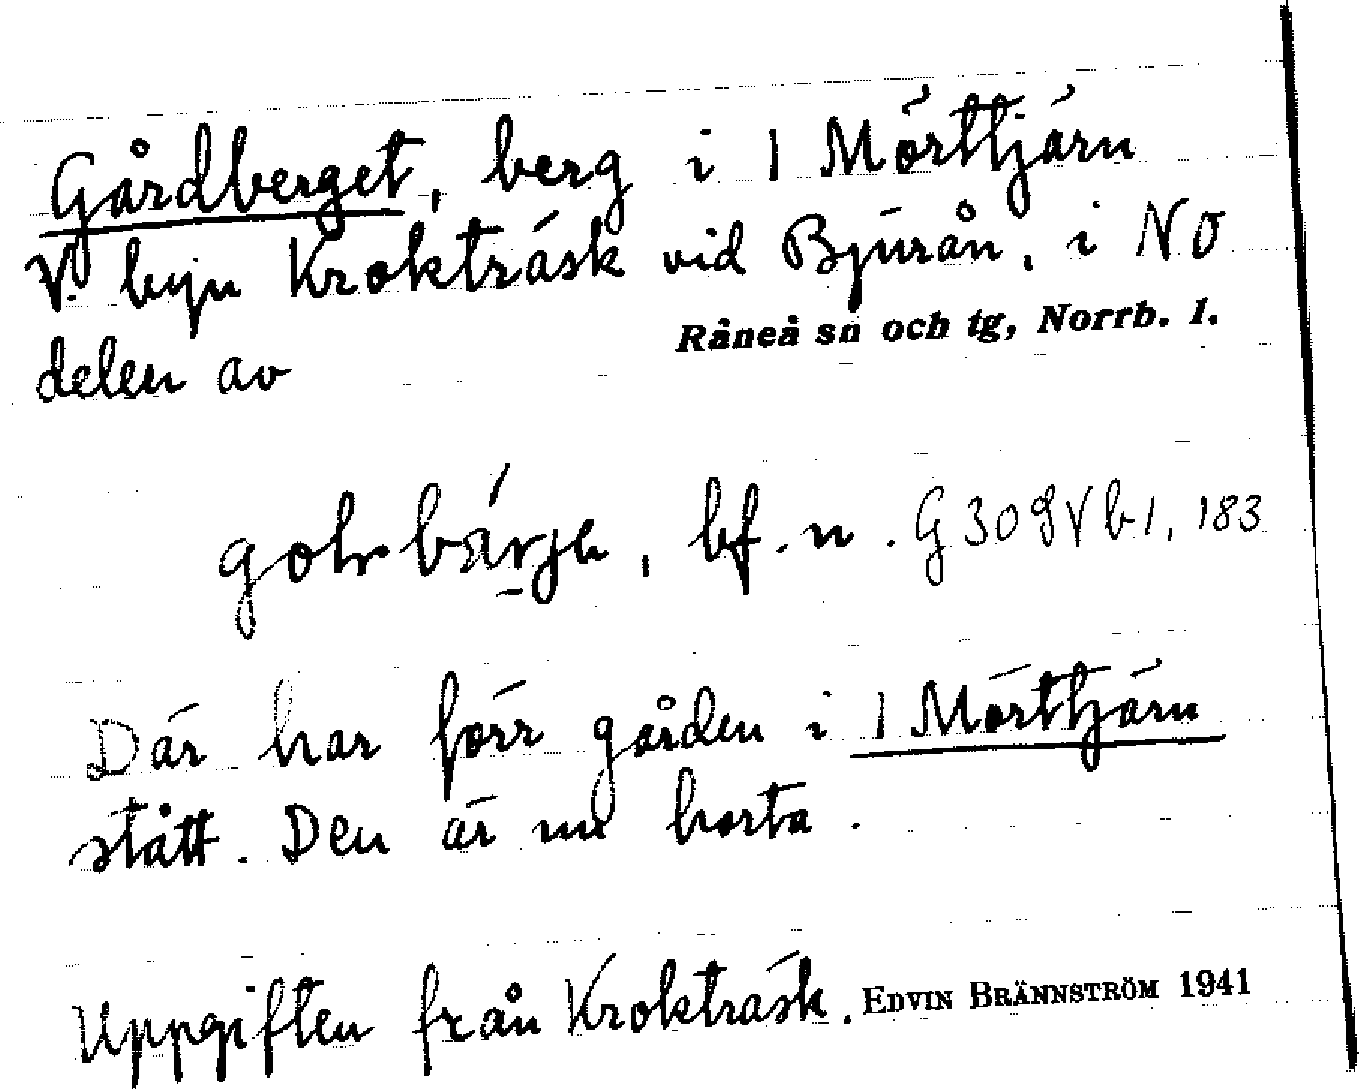 Gårdberget, berg i 1 Mörttjärn
V. byn Kroktråsk vid Bjurån, i NO
delen av
Råneå sn och tg, Norrb. l.
bf. n. G 309 V b 1, 183
Där har förr gården i 1 Mörttjärn
stått. Den är nu borta.
Uppgiften från Kroktråsk. EDVIN BRÄNNSTRÖM 1941